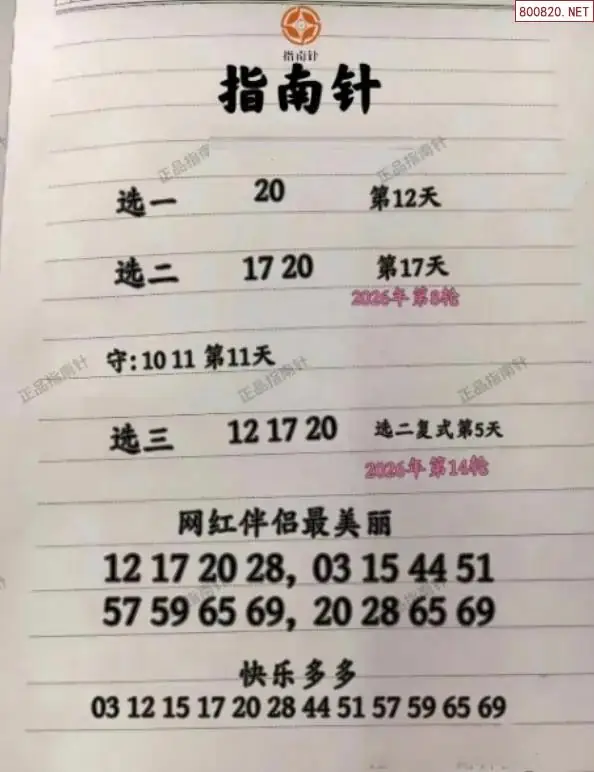 800820.NET
指南针
指南针
正品指南针 正品指南针
选一 20 第12天
选二 17 20 第17天
2026年第8轮
守:10 11 第11天
正品指南针 正品指南针 正品指南针
选三 12 17 20 选二复式第5天
2026年第14轮
网红伴侣最美丽
12 17 20 28, 03 15 44 51
57 59 65 69, 20 28 65 69
正品指南针 正品指南针
快乐多多
03 12 15 17 20 28 44 51 57 59 65 69